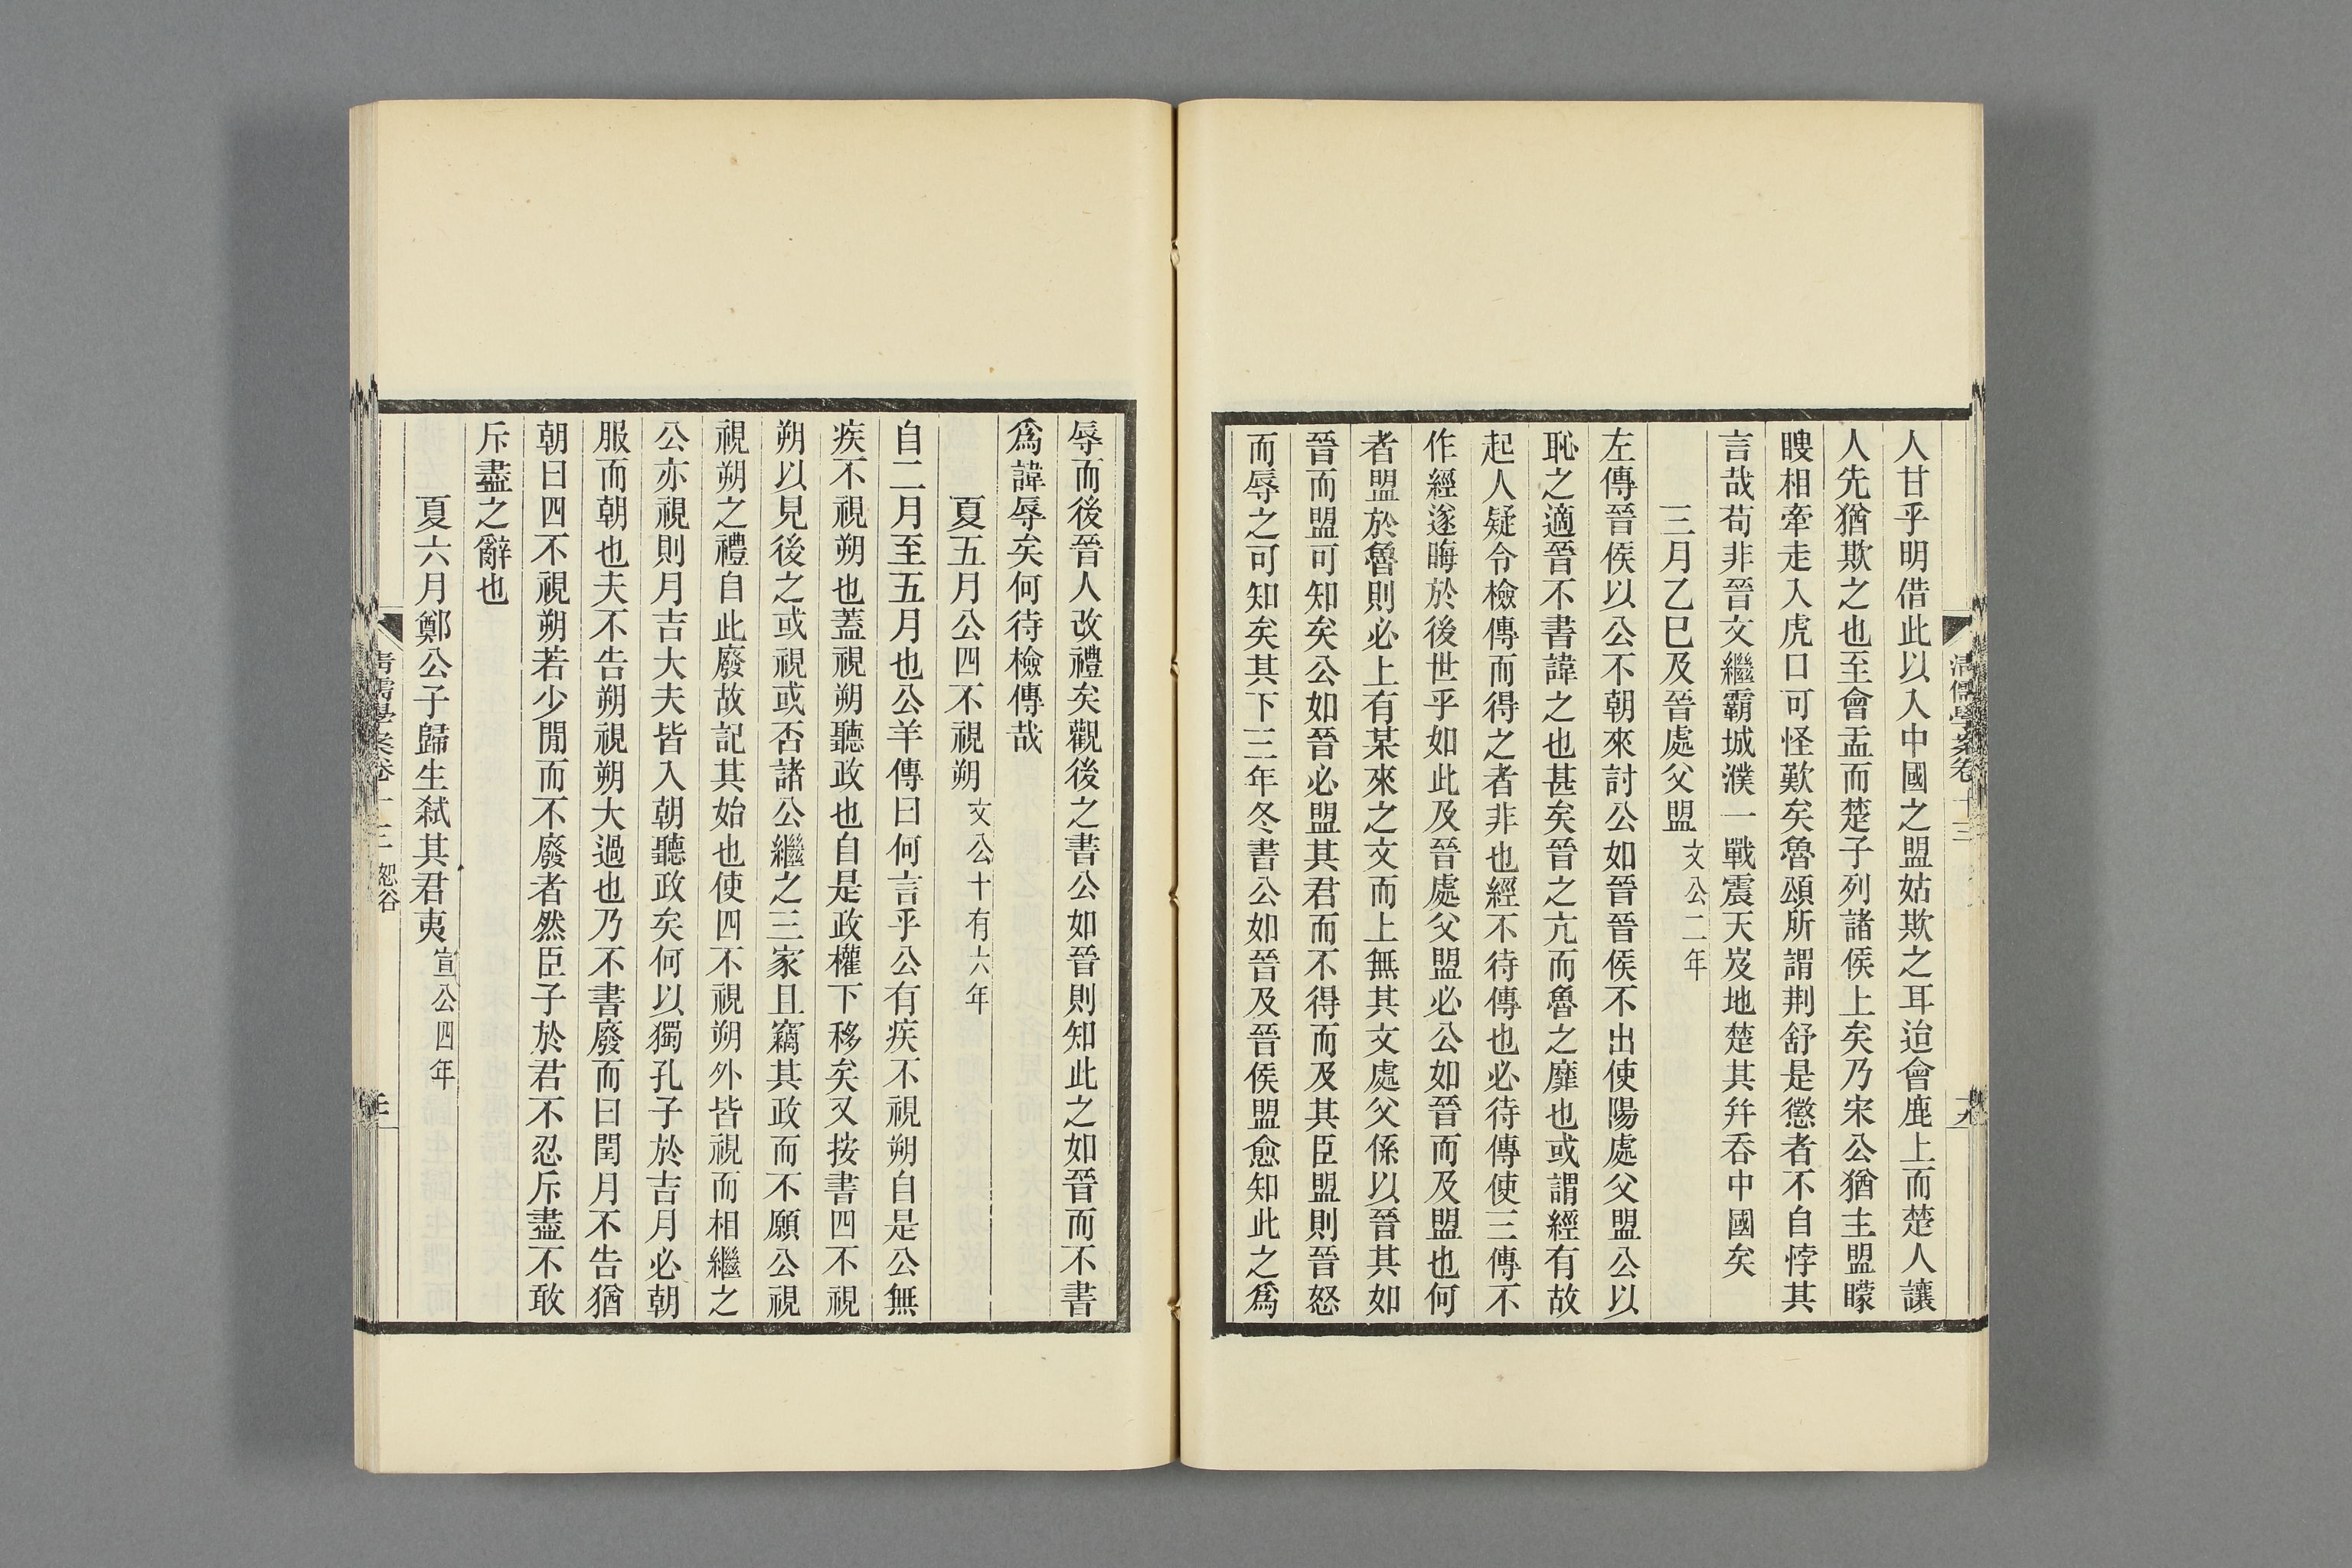 清儒學案卷十三
十九
人甘乎明借此以入中國之盟姑欺之耳迨會鹿上而楚人讓
人先猶欺之也至會盂而楚子列諸侯上矣乃宋公猶主盟矇
瞍相牽走入虎口可怪歎矣魯頌所謂荆舒是懲者不自悖其
言哉苟非晉文繼霸城濮一戰震天岌地楚其幷吞中國矣
三月乙巳及晉處父盟文公二年
左傳晉侯以公不朝來討公如晉晉侯不出使陽處父盟公以
恥之適晉不書諱之也甚矣晉之亢而魯之靡也或謂經有故
起人疑令檢傳而得之者非也經不待傳也必待傳使三傳不
作經遂晦於後世乎如此及晉處父盟必公如晉而及盟也何
者盟於魯則必上有某來之文而上無其文處父係以晉其如
晉而盟可知矣公如晉必盟其君而不得而及其臣盟則晉怒
而辱之可知矣其下三年冬書公如晉及晉侯盟愈知此之爲
辱而後晉人改禮矣觀後之書公如晉則知此之如晉而不書
爲諱辱矣何待檢傳哉
夏五月公四不視朔文公十有六年
自二月至五月也公羊傳曰何言乎公有疾不視朔自是公無
疾不視朔也蓋視朔聽政也自是政權下移矣又按書四不視
朔以見後之或視或否諸公繼之三家且竊其政而不願公視
視朔之禮自此廢故記其始也使四不視朔外皆視而相繼之
公亦視則月吉大夫皆入朝聽政矣何以獨孔子於吉月必朝
服而朝也夫不告朔視朔大過也乃不書廢而曰閏月不告猶
朝曰四不視朔若少閒而不廢者然臣子於君不忍斥盡不敢
斥盡之辭也
夏六月鄭公子歸生弒其君夷宣公四年
清儒學案卷十三 恕谷